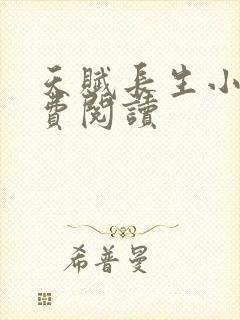 天賦長生小
費閱讀
希普曼